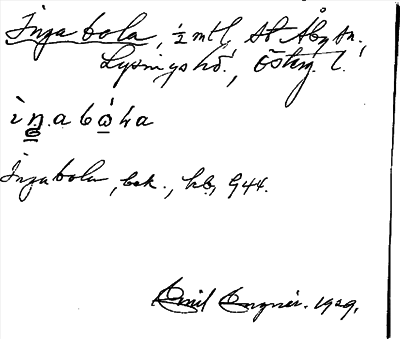 Ingabola, ½ mtl, St. Åby sn.,
Lysings hd., Österg. l.
ìn̲.a bó̲ɫa
Ingabola, bek., hb, 944.
Emil Engnér. 1929.